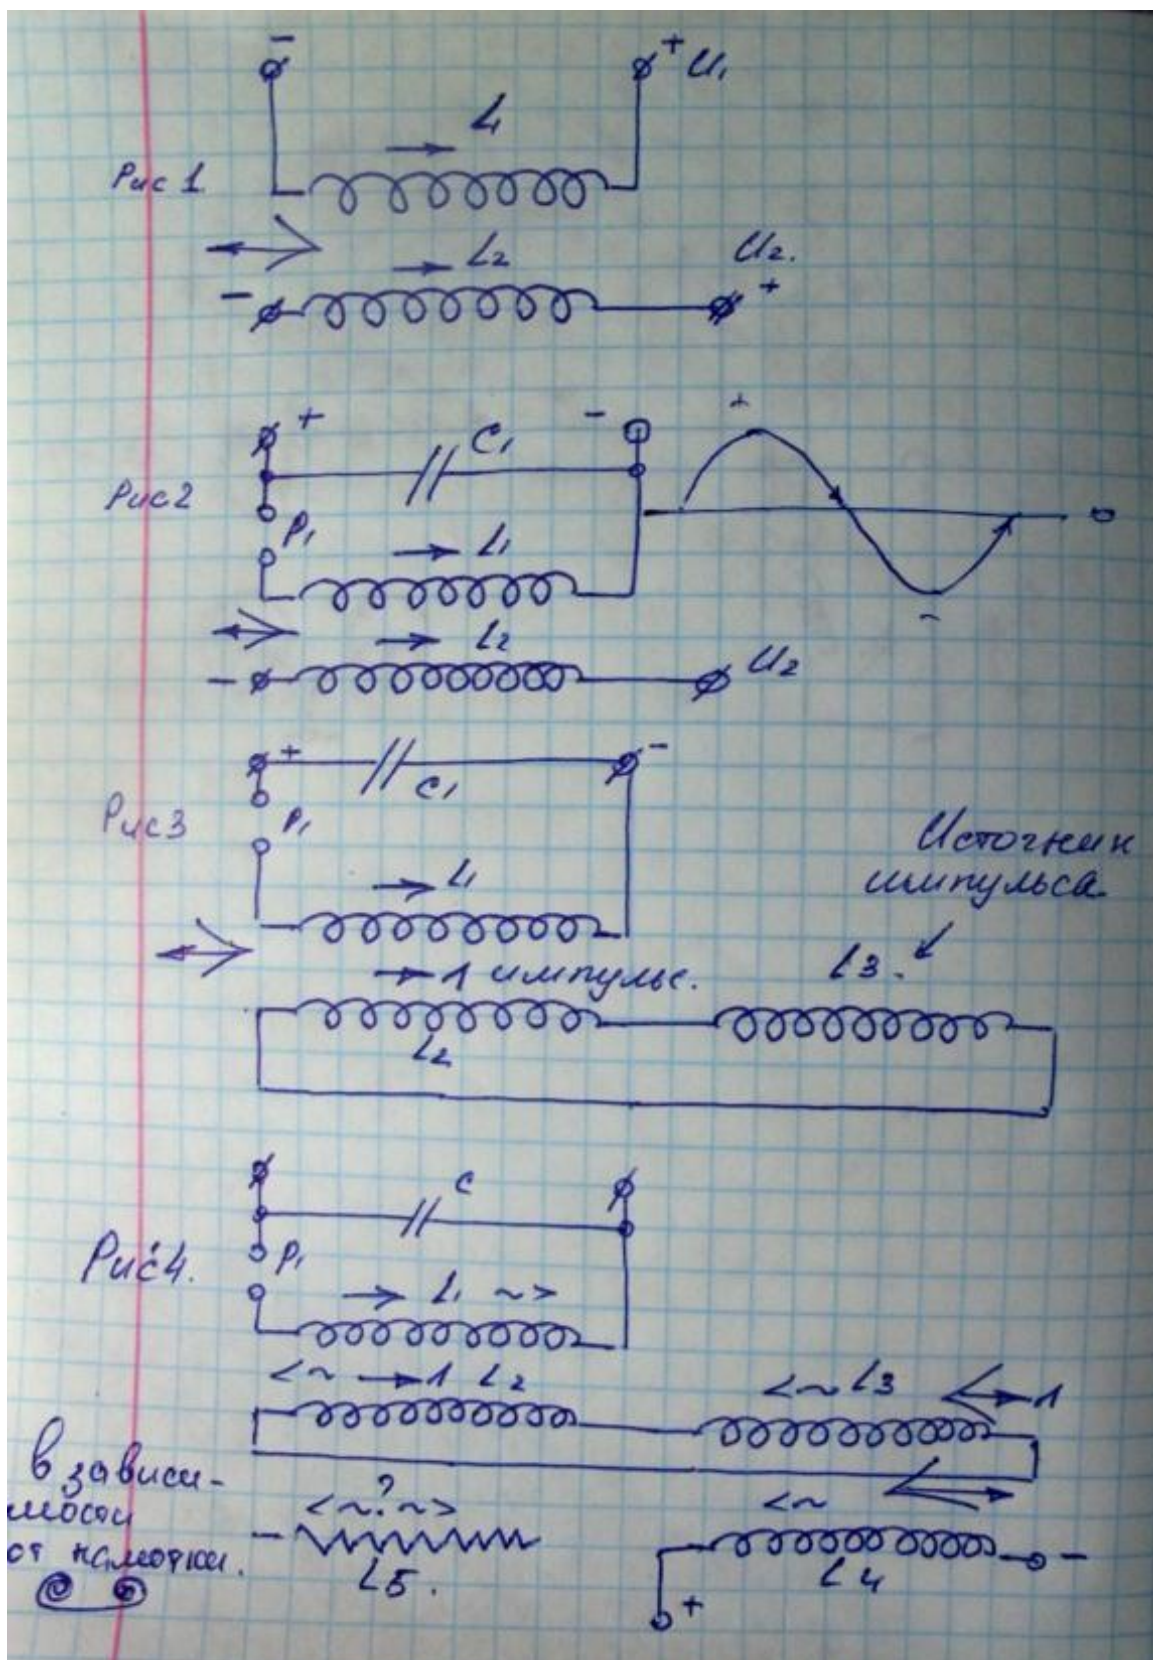 - + U₁
L₁
Рис 1
L₂ U₂.
- +
+ C₁ - +
Рис2
P₁ L₁
-
L₂
- U₂
+ C₁ -
Рис3 P₁
L₁
Источник
импульса
1 импульс. L3.
L₂
C
Рис4. P₁
L₁ ~>
<~ 1 L₂ <~ L3 1
В зависи-
мости
от намотки.
<~?~> <~
- L5. L4 -
+